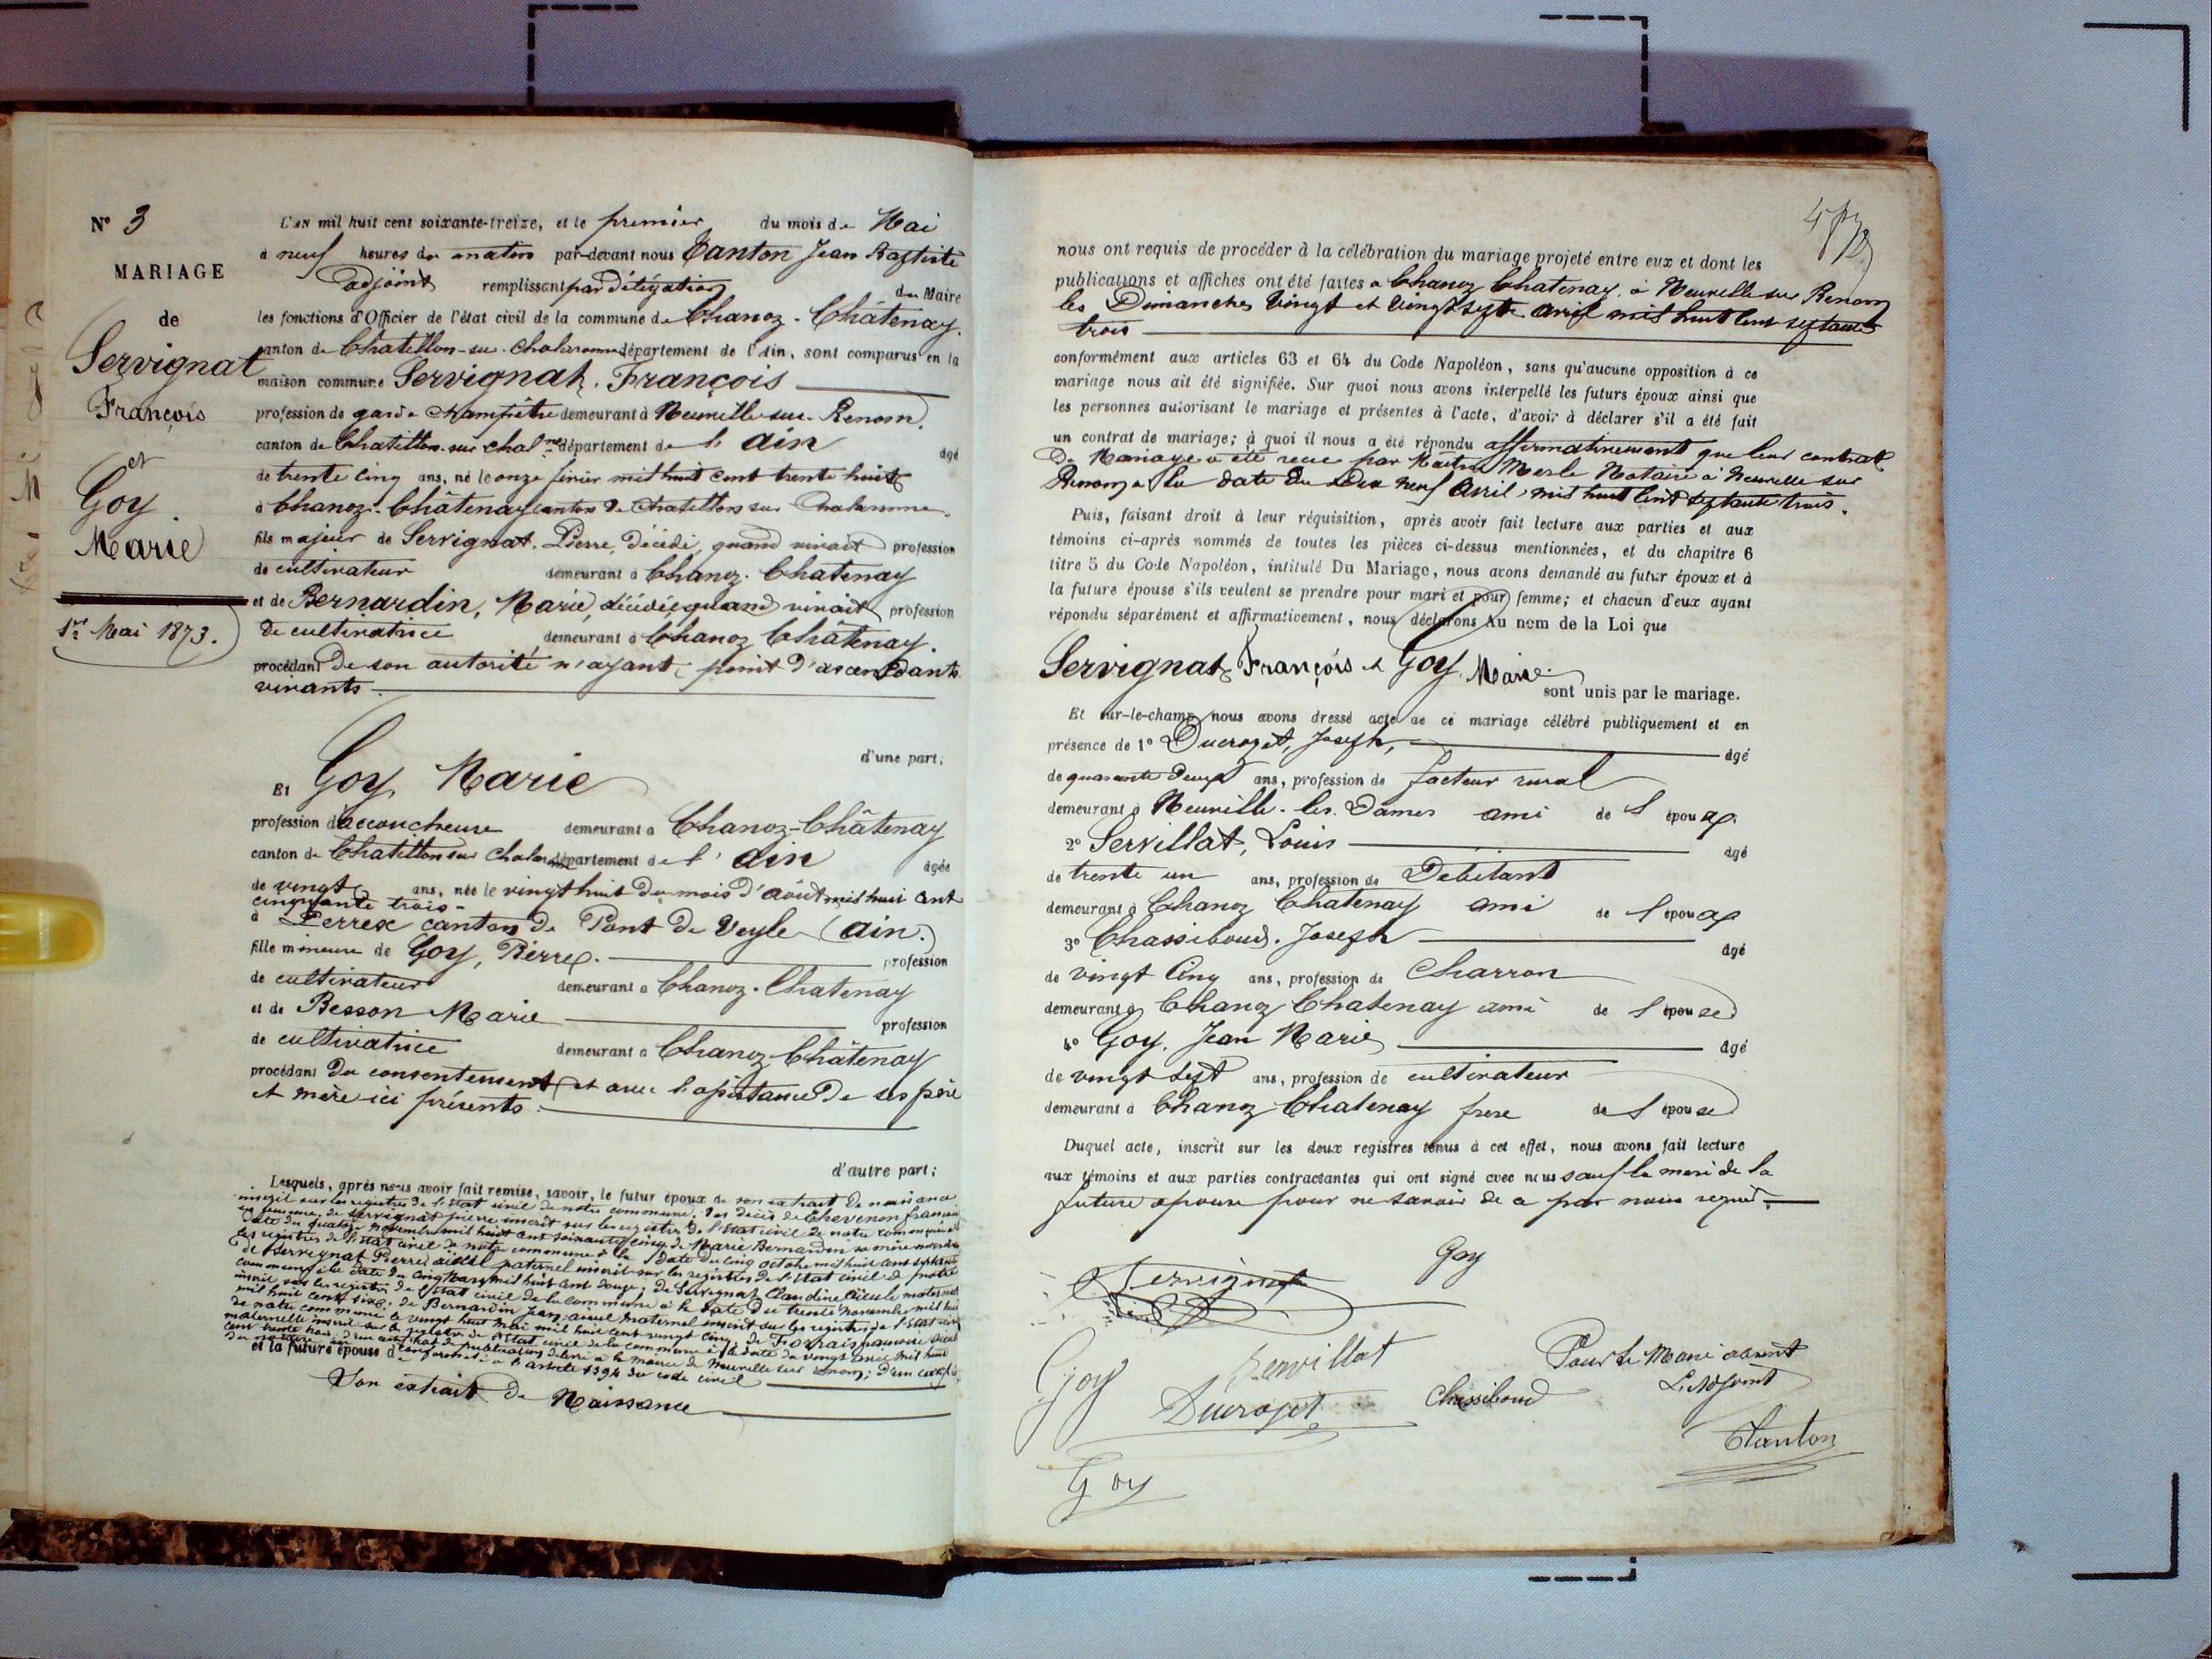 N° 3
MARIAGE
de
Servignat
François
et
Goy
Marie
1er Mai 1873.
L'an mil huit cent soixante-treize, et le premier du mois de Mai
à neuf heures du matin par-devant nous Tanton Jean Baptiste
adjoint remplissant par délégation du Maire
les fonctions d'Officier de l'état civil de la commune de Chanoz-Châtenay.
canton de Chatillon-sur-Chalaronne département de l'Ain, sont comparus en la
maison commune Servignat, François
profession de garde champêtre demeurant à Neuville sur Renom.
canton de Chatillon sur Chalne département de l'ain âgé
de trente cinq ans, né le onze février mil huit cent trente huit
à Chanoz-Châtenay canton de Chatillon sur Chalaronne
fils majeur de Servignat, Pierre, décédé, quand vivait profession
de cultivateur demeurant à Chanoz-Chatenay
et de Bernardin, Marie, décédée quand vivait profession
de cultivatrice demeurant à Chanoz Châtenay.
procédant de son autorité n'ayant point d'ascendants
vivants
d'une part;
Et Goy, Marie
profession d'accoucheuse demeurant à Chanoz-Châtenay
canton de Chatillon sur Chalar département de l'ain âgée
de vingt ans, née le vingt huit du mois d'août mil huit cent
cinquante trois
à Perrex canton de Pont de Veyle (ain.)
fille mineure de Goy, Pierre. profession
de cultivateur demeurant à Chanoz-Chatenay
et de Besson Marie profession
de cultivatrice demeurant à Chanoz-Châtenay
procédant du consentement et avec l'assistance de ses père
et mère ici présents.
d'autre part;
Lesquels, après nous avoir fait remise, savoir, le futur époux de son extrait de naissance
inscrit sur les registres de l'état civil de notre commune; des décès de Chevenon françoise
sa femme, de Servignat pierre inscrit sur les registres de l'état civil de notre commune à la
date du quatorze novembre mil huit cent soixante cinq; de Marie Bernardin sa mère
les registres de l'état civil de notre commune à la date du cinq octobre mil huit cent
de Servignat Pierre aïeul paternel inscrit sur les registres de l'état civil de notre
commune à la date du cinq Mars mil huit cent douze; de Servignat Claudine aïeule maternelle
inscrit sur les registres de l'état civil de la commune à la date du trente novembre mil huit
mil huit cent six; de Bernardin Jean aïeul maternel inscrit sur les registres de l'état civil
de notre commune le vingt huit mai mil huit cent vingt cinq; de françoise aïeule
maternelle inscrit sur le registre de l'état civil de la commune à la date du vingt mil huit
cent trente; d'un certificat de publication délivré à la mairie de Neuville sur Renom; d'un certificat
du notaire conformé à l'article 1394 du code civil
et la future épouse de
Son extrait de Naissance
nous ont requis de procéder à la célébration du mariage projeté entre eux et dont les
publications et affiches ont été faites à Chanoz Chatenay, à Neuville sur Renom
les Dimanches vingt et vingt sept avril mil huit cent septante
trois
conformément aux articles 63 et 64 du Code Napoléon, sans qu'aucune opposition à ce
mariage nous ait été signifiée. Sur quoi nous avons interpellé les futurs époux ainsi que
les personnes autorisant le mariage et présentes à l'acte, d'avoir à déclarer s'il a été fait
un contrat de mariage; à quoi il nous a été répondu affirmativement que leur contrat
de Mariage a été reçu par Maître Merle Notaire à Neuville sur
Renom à la date du dix neuf avril mil huit cent septante trois.
Puis, faisant droit à leur réquisition, après avoir fait lecture aux parties et aux
témoins ci-après nommés de toutes les pièces ci-dessus mentionnées, et du chapitre 6
titre 5 du Code Napoléon, intitulé Du Mariage, nous avons demandé au futur époux et à
la future épouse s'ils veulent se prendre pour mari et pour femme; et chacun d'eux ayant
répondu séparément et affirmativement, nous déclarons au nom de la Loi que
Servignat François et Goy, Marie
sont unis par le mariage.
Et sur-le-champ nous avons dressé acte de ce mariage célébré publiquement et en
présence de 1° Ducrozet, Joseph, âgé
de quarante deux ans, profession de facteur rural
demeurant à Neuville-les-Dames ami de l'époux
2° Servillat, Louis âgé
de trente un ans, profession de Débitant
demeurant à Chanoz Chatenay ami de l'époux
3° Chassiboud. Joseph âgé
de vingt cinq ans, profession de Charron
demeurant à Chanoz Chatenay ami de l'épouse
4° Goy, Jean Marie âgé
de vingt sept ans, profession de cultivateur
demeurant à Chanoz Chatenay frere de l'épouse
Duquel acte, inscrit sur les deux registres tenus à cet effet, nous avons fait lecture
aux témoins et aux parties contractantes qui ont signé avec nous sauf la mère de la
future épouse pour ne savoir de ce par nous requis.
Servignat
Goy
Goy
Servillat
Ducrozet
Chassiboud
Pour le Maire absent
L'Adjoint
Tanton
Goy